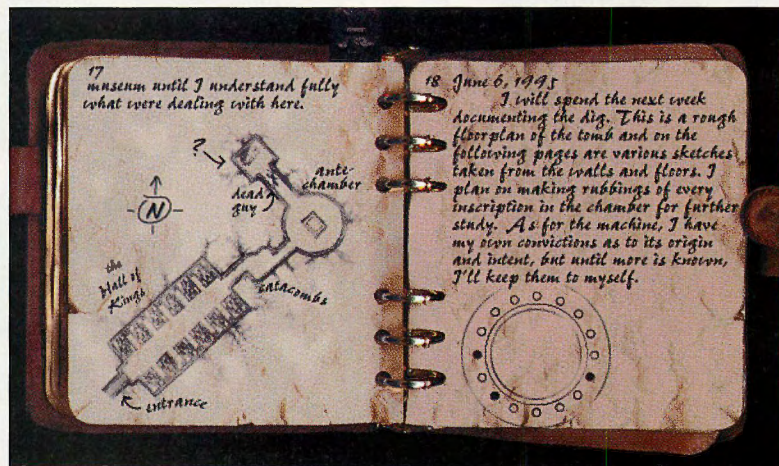 17
museum until I understand fully
what were dealing with here.
?
ante-
chamber
dead
guy
N
the
Hall of
Kings
catacombs
entrance
18 June 6, 1995
I will spend the next week
documenting the dig. This is a rough
floorplan of the tomb and on the
following pages are various sketches
taken from the walls and floors. I
plan on making rubbings of every
inscription in the chamber for further
study. As for the machine, I have
my own convictions as to its origin
and intent, but until more is known,
I'll keep them to myself.